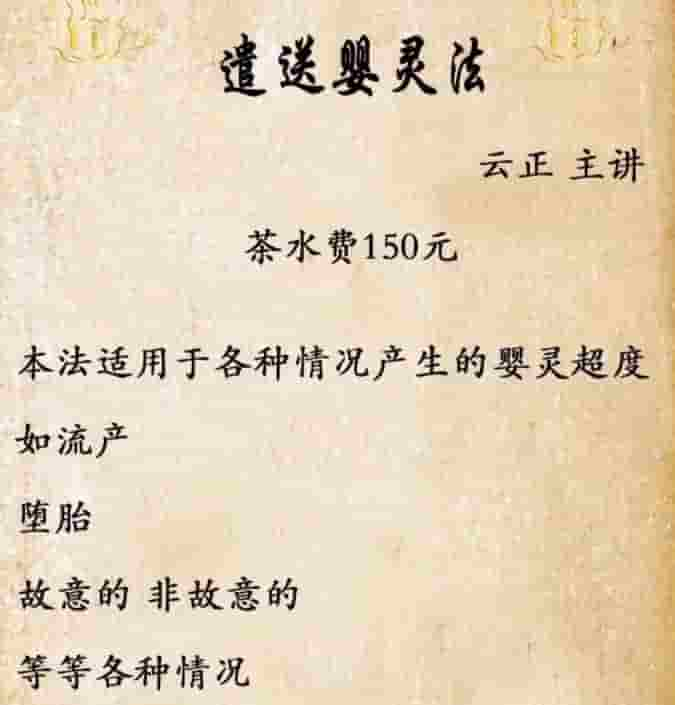 遣送婴灵法
云正 主讲
茶水费150元
本法适用于各种情况产生的婴灵超度
如流产
堕胎
故意的 非故意的
等等各种情况